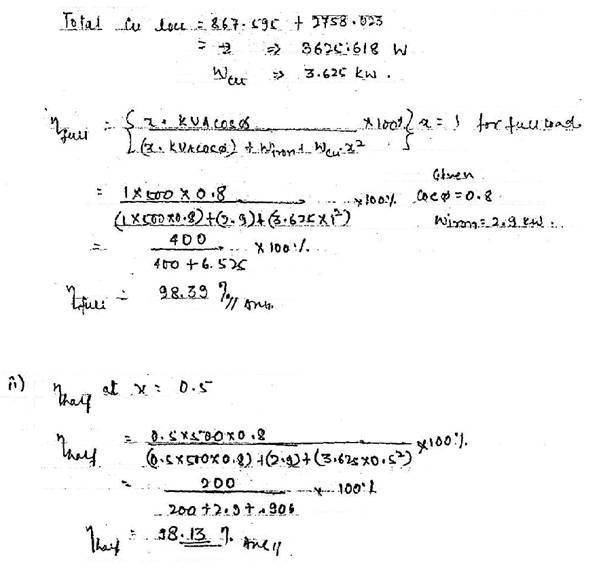 Total Cu loss = 867.595 + 2758.023
= 2 => 3625.618 W
Wcu => 3.625 kW.
ηfull = { x. KVA cosø / (x. KVA cosø) + Wiron + Wcu x² × 100% } x = 1 for full load
= 1×500×0.8 / (1×500×0.8)+(2.9)+(3.625×1²) ×100%
Given
cosø=0.8
Wiron=2.9 kW
= 400 / 400+6.525 ×100%
ηfull = 98.39 % // Ans.
ii) ηhalf at x = 0.5
ηhalf = 0.5×500×0.8 / (0.5×500×0.8)+(2.9)+(3.625×0.5²) ×100%
= 200 / 200+2.9+.906 × 100%
ηhalf = 98.13 % Ans //